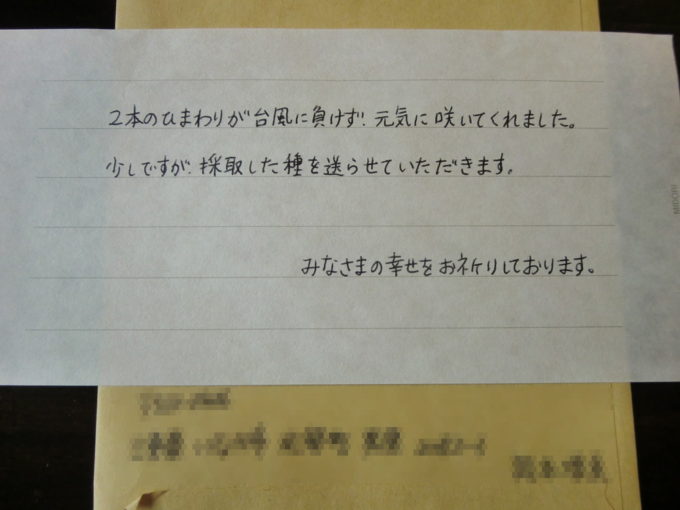 2本のひまわりが台風に負けず、元気に咲いてくれました。
少しですが、採取した種を送らせていただきます。
みなさまの幸せをお祈りしております。